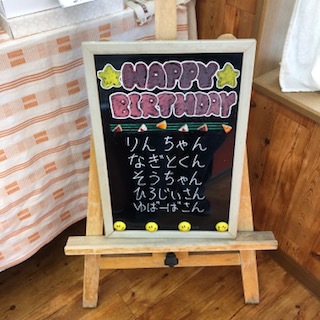 HAPPY
BIRTHDAY
りんちゃん
なぎとくん
そうちゃん
ひろじぃさん
ゆばーばさん